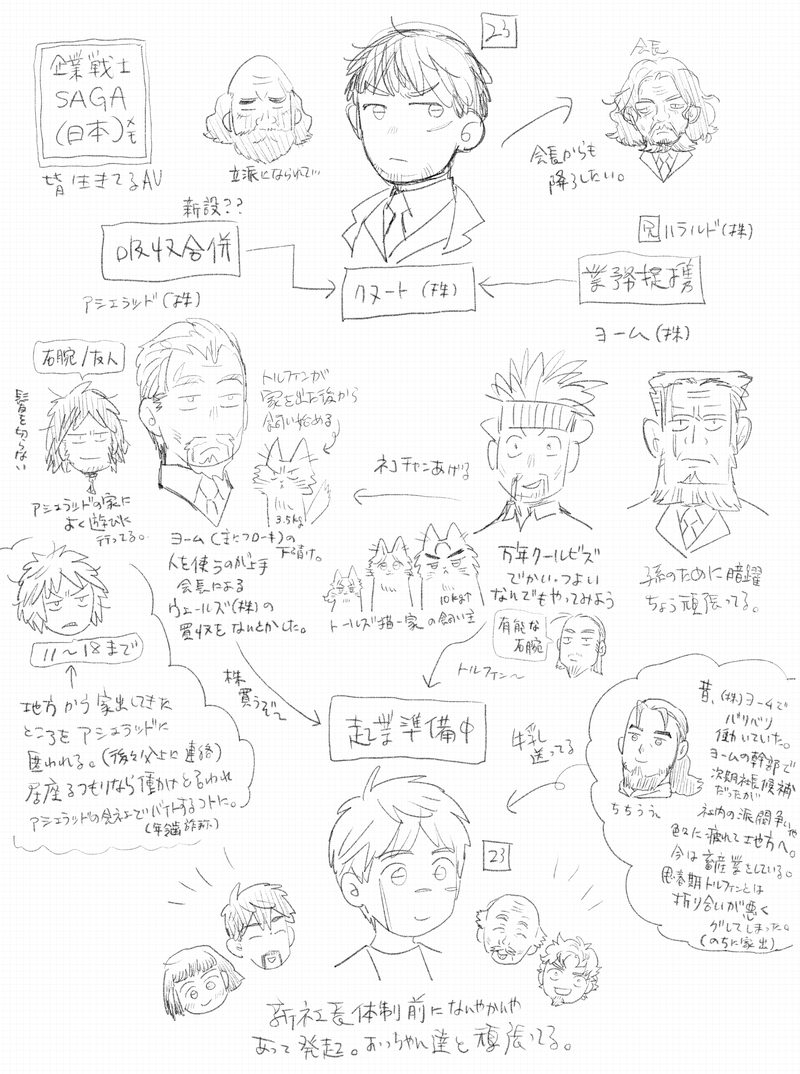 企業戦士
SAGA
(日本)メモ
皆生きてるAU
23
会長
立派になられて…
会長からも
降ろしたい。
新設??
吸収合併
アシェラッド(株)
クヌート(株)
兄ハラルド(株)
業務提携
ヨーム(株)
右腕/友人
髪を切らない
アシェラッドの家に
よく遊びに
行ってる。
トルフィンが
家を出た後から
飼い始める
3.5kg
ネコチャンあげる
ヨーム(主にフローキ)の
下請け。
人を使うのが上手
会長による
ウェールズ(株)の
買収をなんとかした。
10kgオーバー
トールズ猫一家の飼い主
万年クールビズ
でかい・つよい
なんでもやってみよう
孫のために暗躍
ちょう頑張ってる。
有能な
右腕
トルフィン〜
11〜18まで
地方から家出してきた
ところをアシェラッドに
匿われる。(後々父上に連絡)
居座るつもりなら働けと言われ
アシェラッドの会社でバイトするコトに。
(年齢詐称)
株
買うぞ〜
起業準備中
牛乳
送ってる
23
ちちうえ
昔、(株)ヨームで
バリバリ
働いていた。
ヨームの幹部で
次期社長候補
だったが
社内の派閥争いや
色々に疲れて地方へ。
今は畜産業をしている。
思春期トルフィンとは
折り合いが悪く
グレてしまった。
(のちに家出)
新社長体制前になんやかんや
あって発起。おっちゃん達と頑張ってる。